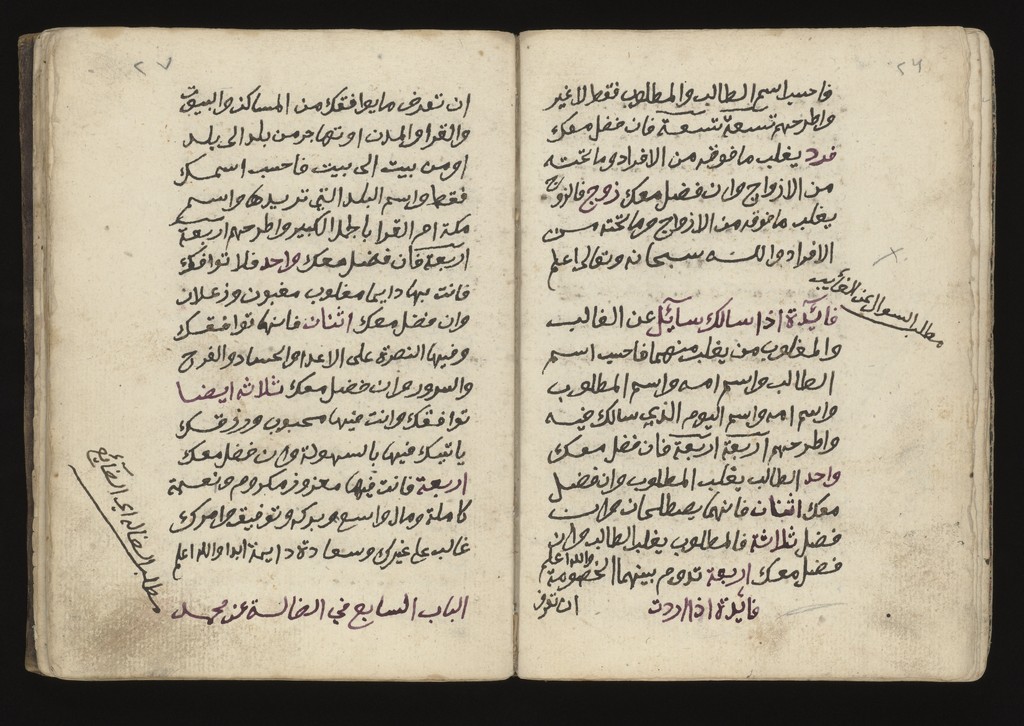 ٢٦
فاحسب اسم الطالب والمطلوب فقط لا غير
واطرحهم تسعة تسعة فان فضل معك
فرد يغلب ما فوقه من الافراد وما تحته
من الازواج وان فضل معك زوج فالزوج
يغلب ما فوقه من الازواج وما تحته من
الافراد والله سبحانه وتعالى اعلم
مطلب السوال عن الغائب
فايدة اذا سالك سايل عن الغالب
والمغلوب من يغلب منهما فاحسب اسم
الطالب واسم امه واسم المطلوب
واسم امه واسم اليوم الذي سالك فيه
واطرحهم اربعة اربعة فان فضل معك
واحد الطالب يغلب المطلوب وان فضل
معك اثنان فانهما يصطلحان وان
فضل ثلاثة فالمطلوب يغلب الطالب وان
فضل معك اربعة تدوم بينهما الخصومة والله اعلم
فايدة اذا اردت
ان تعرف
٢٧
ان تعرف ما يوافقك من المساكن والبيوت
والقرا والمدن او تهاجر من بلد الى بلد
او من بيت الى بيت فاحسب اسمك
فقط واسم البلد التي تريدها واسم
مكة ام القرا بالجمل الكبير واطرحهم اربعة
اربعة فان فضل معك واحد فلا توافقك
فانت بها دايما مغلوب مغبون وزعلان
وان فضل معك اثنان فانها توافقك
وفيها النصرة على الاعدا والحساد والفرح
والسرور وان فضل معك ثلاثه ايضا
توافقك وانت فيها محبوب ورزقك
ياتيك فيها بالسهولة وان فضل معك
اربعة فانت فيها معزوز مكروم ونعمة
كاملة ومال واسع وبركه وتوفيق وامرك
غالب على غيرك وسعادة دايمة ابدا والله اعلم
الباب السابع في الضالة عن محمد
مطلب الضاله اي الضائع